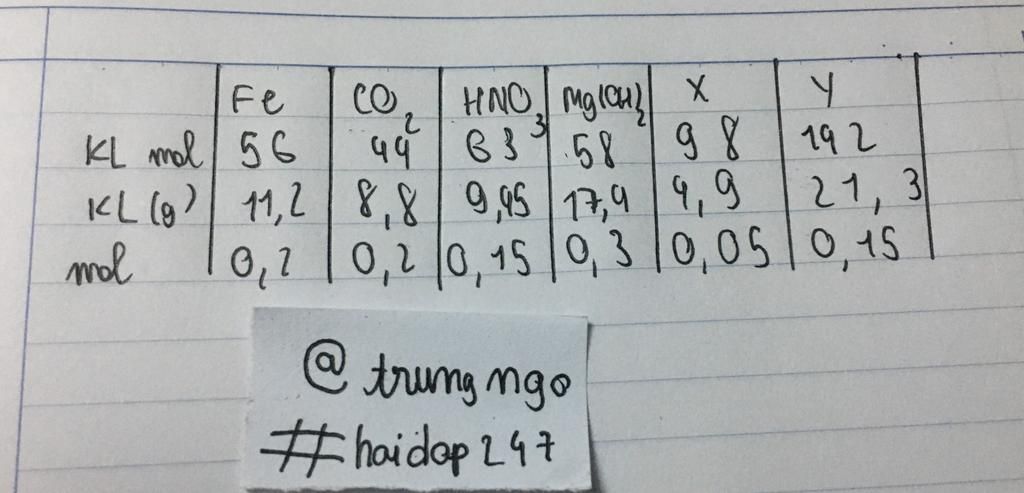 Fe CO2 HNO3 Mg(OH)2 X Y
KL mol 56 44 63 58 98 142
KL(g) 11,2 8,8 9,45 17,4 4,9 21,3
mol 0,2 0,2 0,15 0,3 0,05 0,15
@trungngo
#haidap247